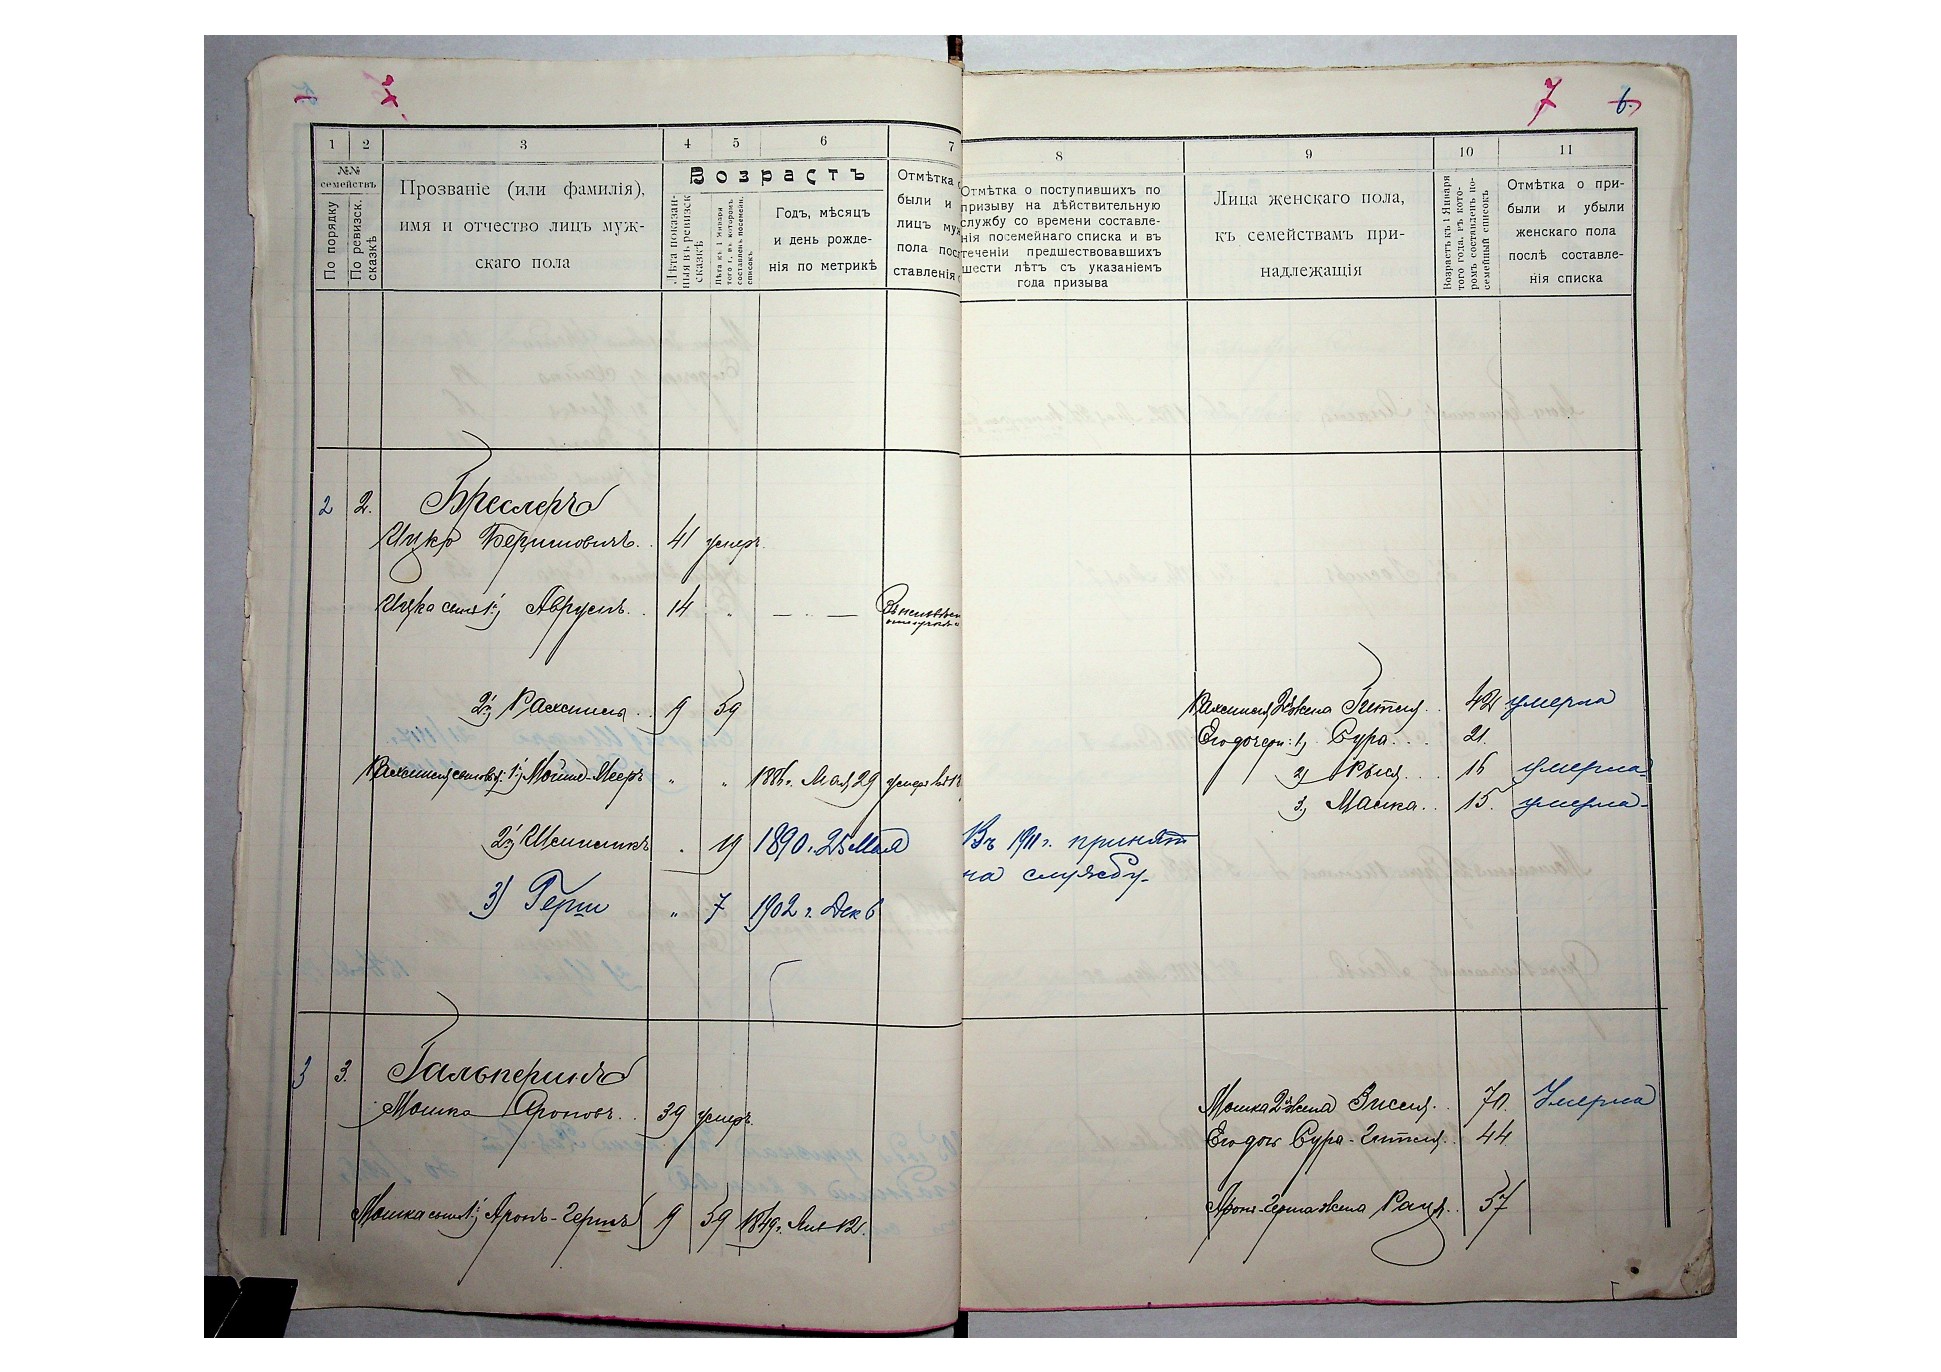 7
7 6.
1 2 3 4 5 6 7
8 9 10 11
№№ семействъ
По порядку
По ревизск. сказкѣ
Прозваніе (или фамилія),
имя и отчество лицъ муж-
скаго пола
Возрастъ
Лѣта показан-
ныя въ ревизск
сказкѣ
Лѣта къ 1 Января
того г., въ которомъ
составленъ посемейн.
списокъ
Годъ, мѣсяцъ
и день рожде-
нія по метрикѣ
Отмѣтка
были и
лицъ муж
пола пос
ставленія
Отмѣтка о поступившихъ по
призыву на дѣйствительную
службу со времени составле-
нія посемейнаго списка и въ
теченіи предшествовавшихъ
шести лѣтъ съ указаніемъ
года призыва
Лица женскаго пола,
къ семействамъ при-
надлежащія
Возрастъ къ 1 Января
того года, въ кото-
ромъ составленъ по-
семейный списокъ
Отмѣтка о при-
были и убыли
женскаго пола
послѣ составле-
нія списка
2 2. Бреслеръ
Ицко Беримовичъ. . 41 умеръ.
Ицка сынъ 1й, Аврумъ. . 14 „ — . —
2й, Рахмиль . . 9 59
Рахмиля 2 жена Гитля . . 42 умерла
Его дочери: 1, Сура . . . 21.
Рахмиля сыновья: 1й, Мойше-Мееръ „ „ 1886 г. Мая 29 умеръ
2, Рыся . . . 16 умерла
3, Маска . . 15. умерла
2й, Шмиликъ . 19 1890 г. 25 Мая Въ 1911 г. принятъ
на службу.
3) Герш „ 7 1902 г. Дек 6
3 3. Гальперинъ
Мошка Ароновъ . . 39 умеръ.
Мошка 2 жена Зисля . . 70. Умерла
Его дочь Сура-Гитля . . 44
Мошка сынъ 1й, Аронъ-Гершъ 9 59 1849 г. Янв 12.
Арона-Герша жена Рация . . 57